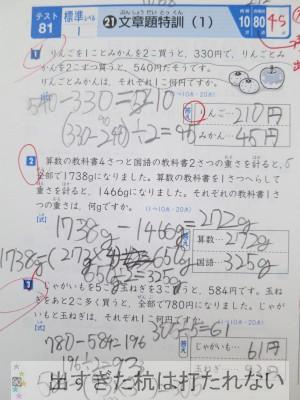 テスト 81
標準レベル 1
㉑文章題特訓（1）
ぶんしょうだいとっくん
10分 80点
45点
1 りんごを1ことみかんを2こ買うと、330円で、りんご2ことみ
かんを2こずつ買うと、540円だそうです。
りんごとみかんは、それぞれ1こ何円ですか。
（1つ10点・20点）
540-330=210
(330-240)÷2=45
答え りんご…210円
みかん…45円
2 算数の教科書4さつと国語の教科書2さつの重さを計ると、
全部で1738gになりました。算数の教科書を1さつへらして
重さを計ると、1466gになりました。それぞれの教科書1さ
つの重さは、何gですか。
（1つ10点・20点）
［式］
1738g-1466g=272g
650÷2=325g
答え 算数…272g
国語…325g
3 じゃがいもを5こと玉ねぎを3こ買うと、584円です。玉ね
ぎをあと2こ多く買うと、全部で780円になりました。じゃが
いもと玉ねぎは、それぞれ1こ何円ですか。
［式］
305÷5=61
780-584=196
答え じゃがいも…61円
出すぎた杭は打たれない